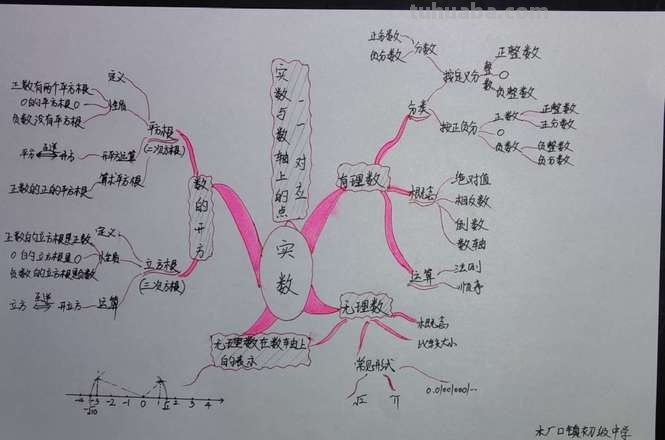 tuhuaba.com
实数
实数与数轴上的点
一一对应
有理数
分类
按定义分
分数
正分数
负分数
整数
正整数
0
负整数
按正负分
正数
正整数
正分数
0
负数
负整数
负分数
概念
绝对值
相反数
倒数
数轴
运算
法则
顺序
无理数
概念
比较大小
常见形式
π
无理数在数轴上
的表示
-4 -3 -2 -1 0 1 2 3 4
数的开方
平方根
(二次方根)
定义
性质
正数有两个平方根
0的平方根0
负数没有平方根
开平方运算
平方 互逆 开方
算术平方根
正数的正的平方根
立方根
(三次方根)
定义
性质
正数的立方根是正数
0的立方根是0
负数的立方根是负数
运算
立方 互逆 开立方